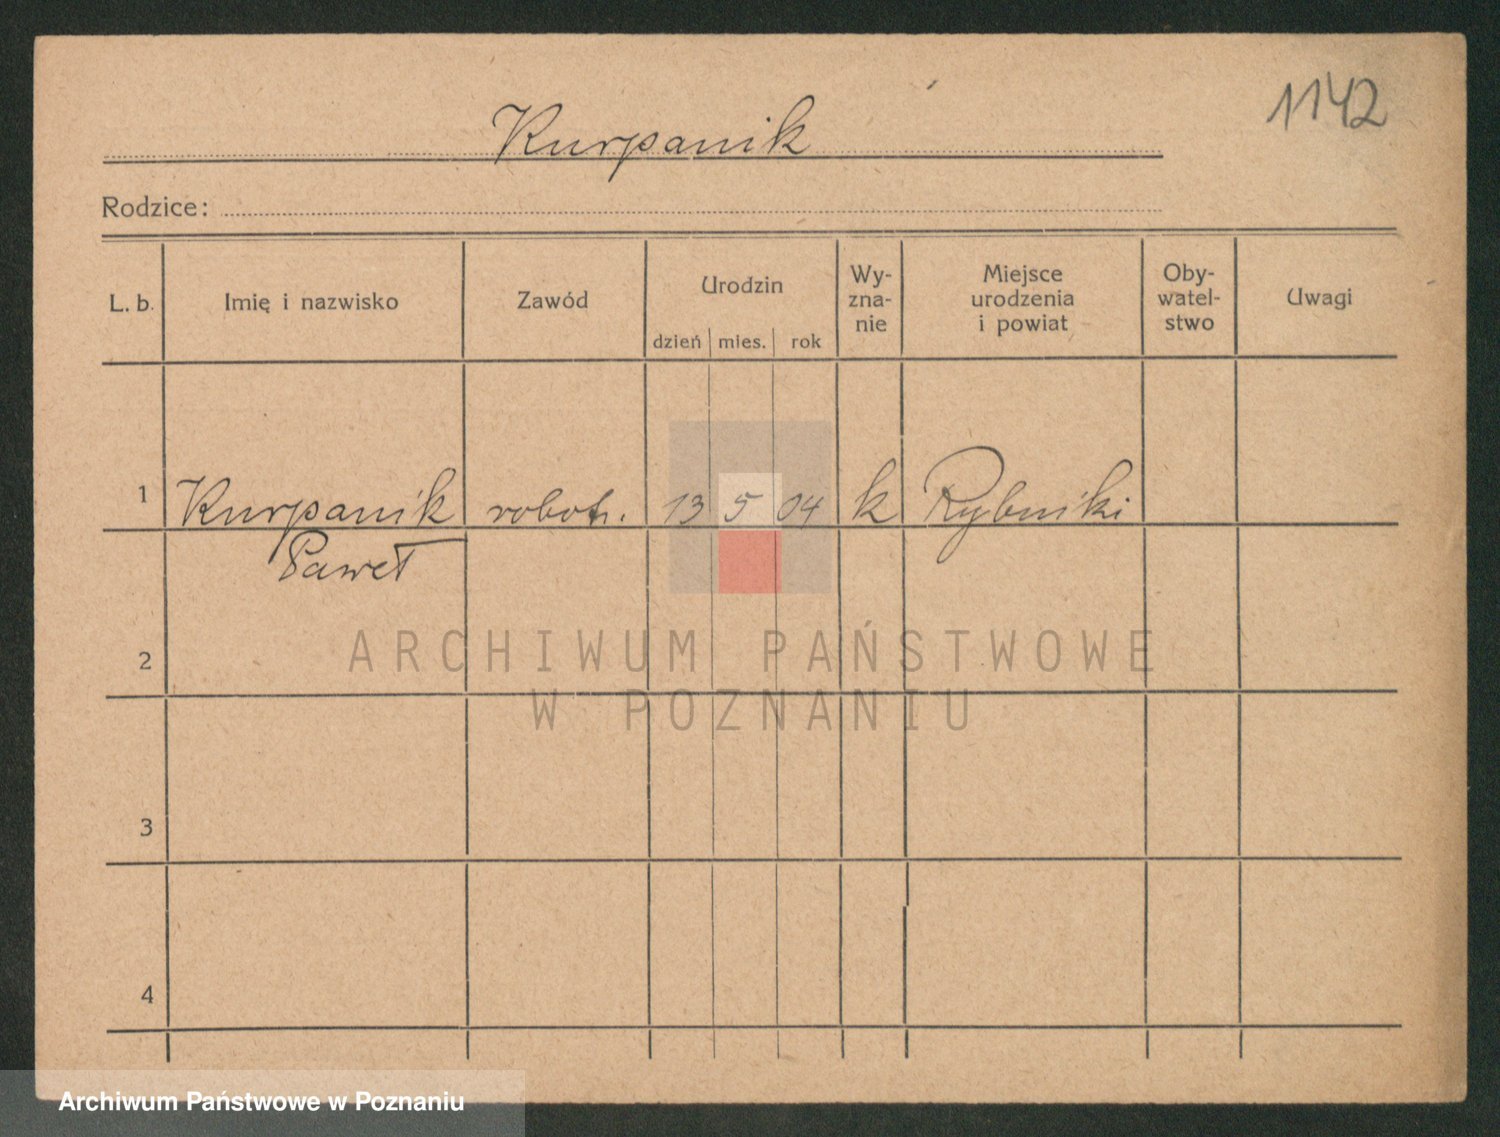 1142
Kurpanik
Rodzice:
L. b. Imię i nazwisko Zawód Urodzin dzień mies. rok Wy-zna-nie Miejsce urodzenia i powiat Oby-watel-stwo Uwagi
1 Kurpanik robotn. 13 5 04 k Rybniki
Paweł
ARCHIWUM PAŃSTWOWE
2
W POZNANIU
3
4
Archiwum Państwowe w Poznaniu